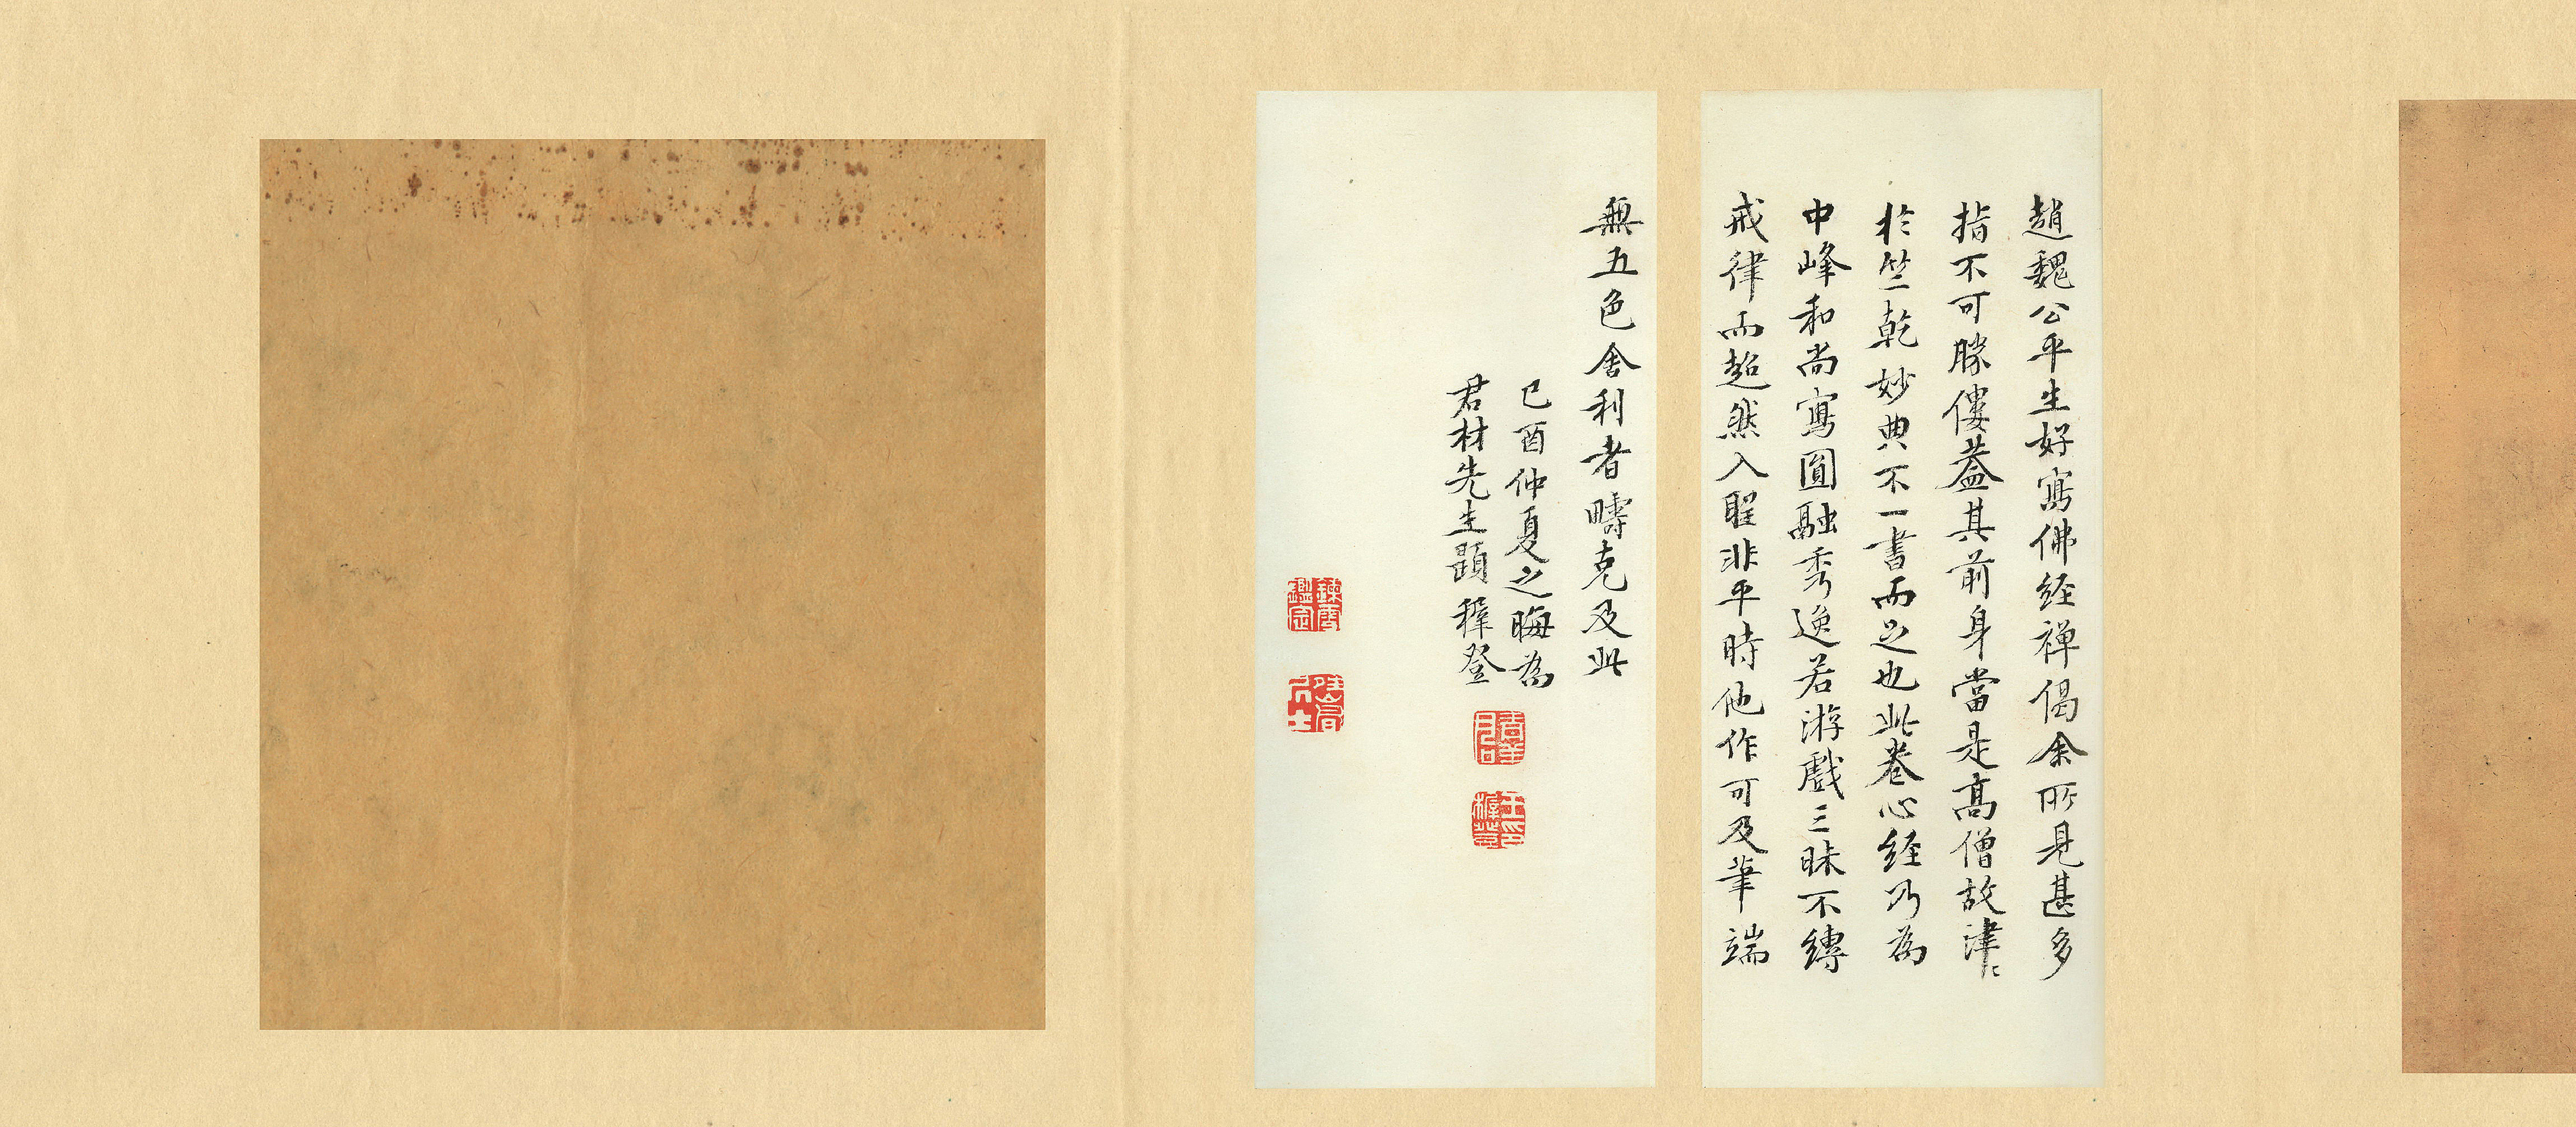 趙魏公平生好寫佛经禅偈余所見甚多
指不可勝僂葢其前身當是髙僧故津〻
於竺乾妙典不一書而之也此卷心经乃為
中峰和尚寫圓融秀逸若游戲三昧不縛
戒律而超然入聖非平時他作可及筆端
無五色舍利者疇克及此
己酉仲夏之晦為
君材先生題穉登
王印穉登